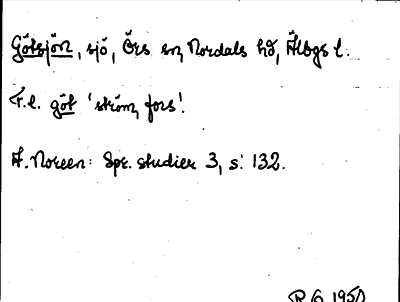 Götsjön, sjö, Örs sn, Nordals hd, Älvbgs l.
F.l. göt 'ström, fors'.
A. Noreen: Spr. studier 3, s. 132.
R G 1950